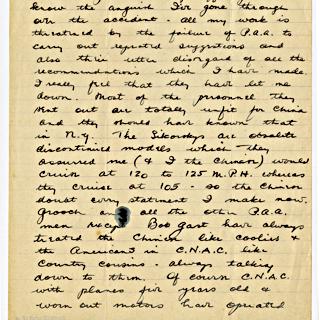 know the anguish I've gone through
over the accident - all my work is
threatened by the failure of P.A.A. to
carry out repeated suggestions and
also their utter disregard of all the
recommendations which I have made.
I really feel that they have let me
down. Most of the personnel they
out are totally unfit for China
and they should have known that
in N.Y. The Sikorskys are obsolete
discontinued models which they
assured me (& I the Chinese) would
cruise at 120 to 125 M.P.H. whereas
they cruise at 105 - so the Chinese
doubt every statement I make now.
Grooch and all the other P.A.A.
men except Boo Gast have always
treated the Chinese like coolies &
the Americans in C.N.A.C. like
country cousins - always talking
down to them. Of course C.N.A.C.
with planes five years old &
worn out motors have operated